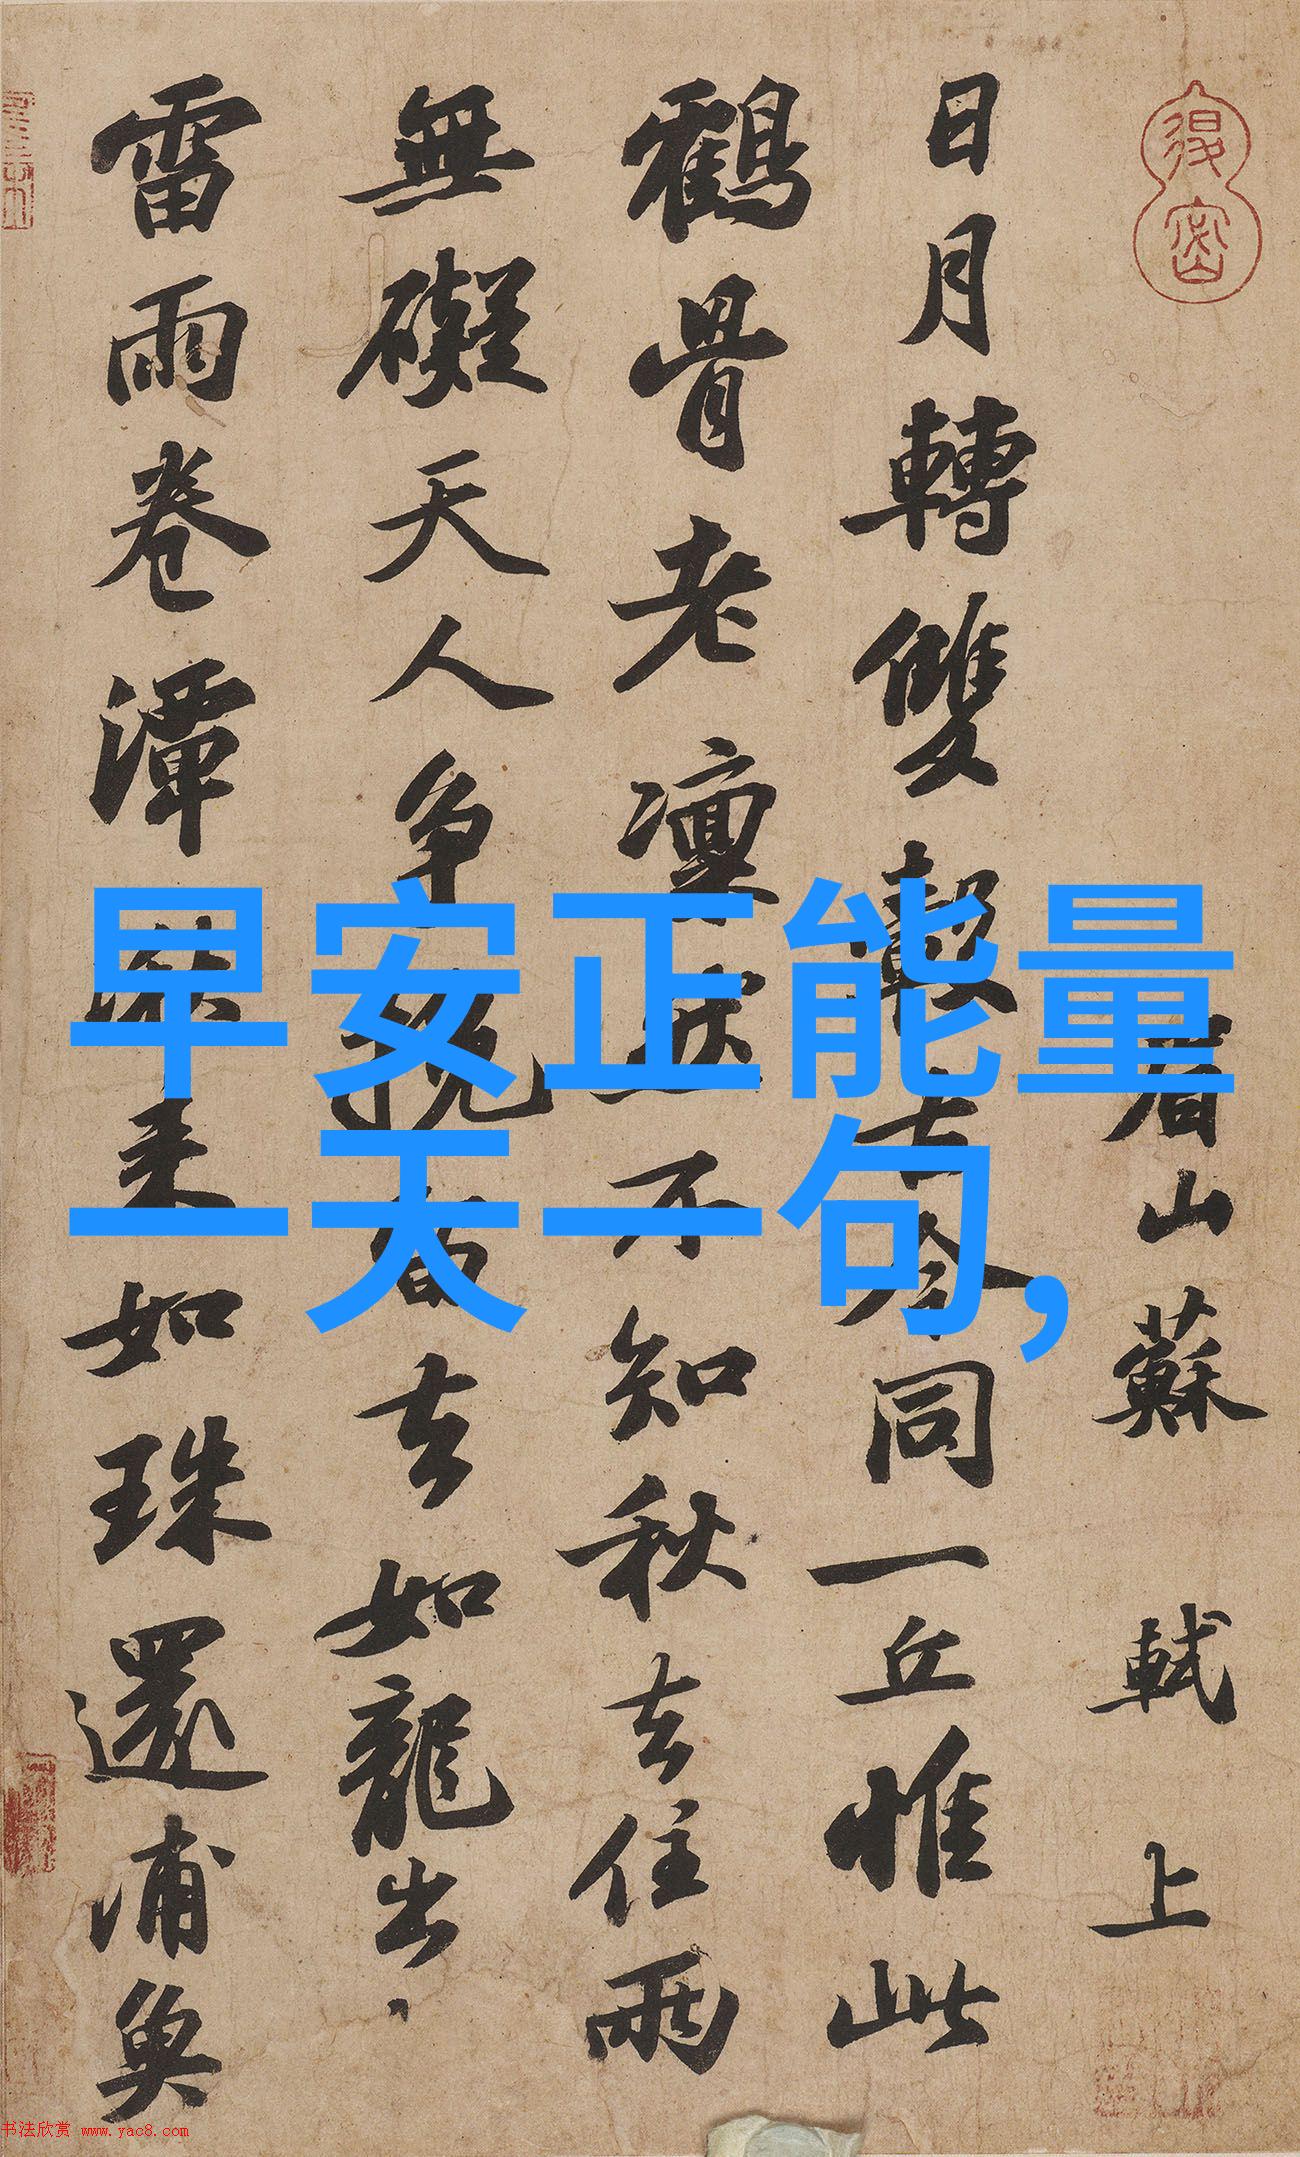 早安正能量
一天一句,
眉山蘇軾上
日月轉雙轂古今同一丘惟此
鶴骨老凜然不知秋去住兩
無礙天人争挽留去如龍出
雷雨卷潭湫来如珠還浦魚
书法欣赏 www.yac8.com